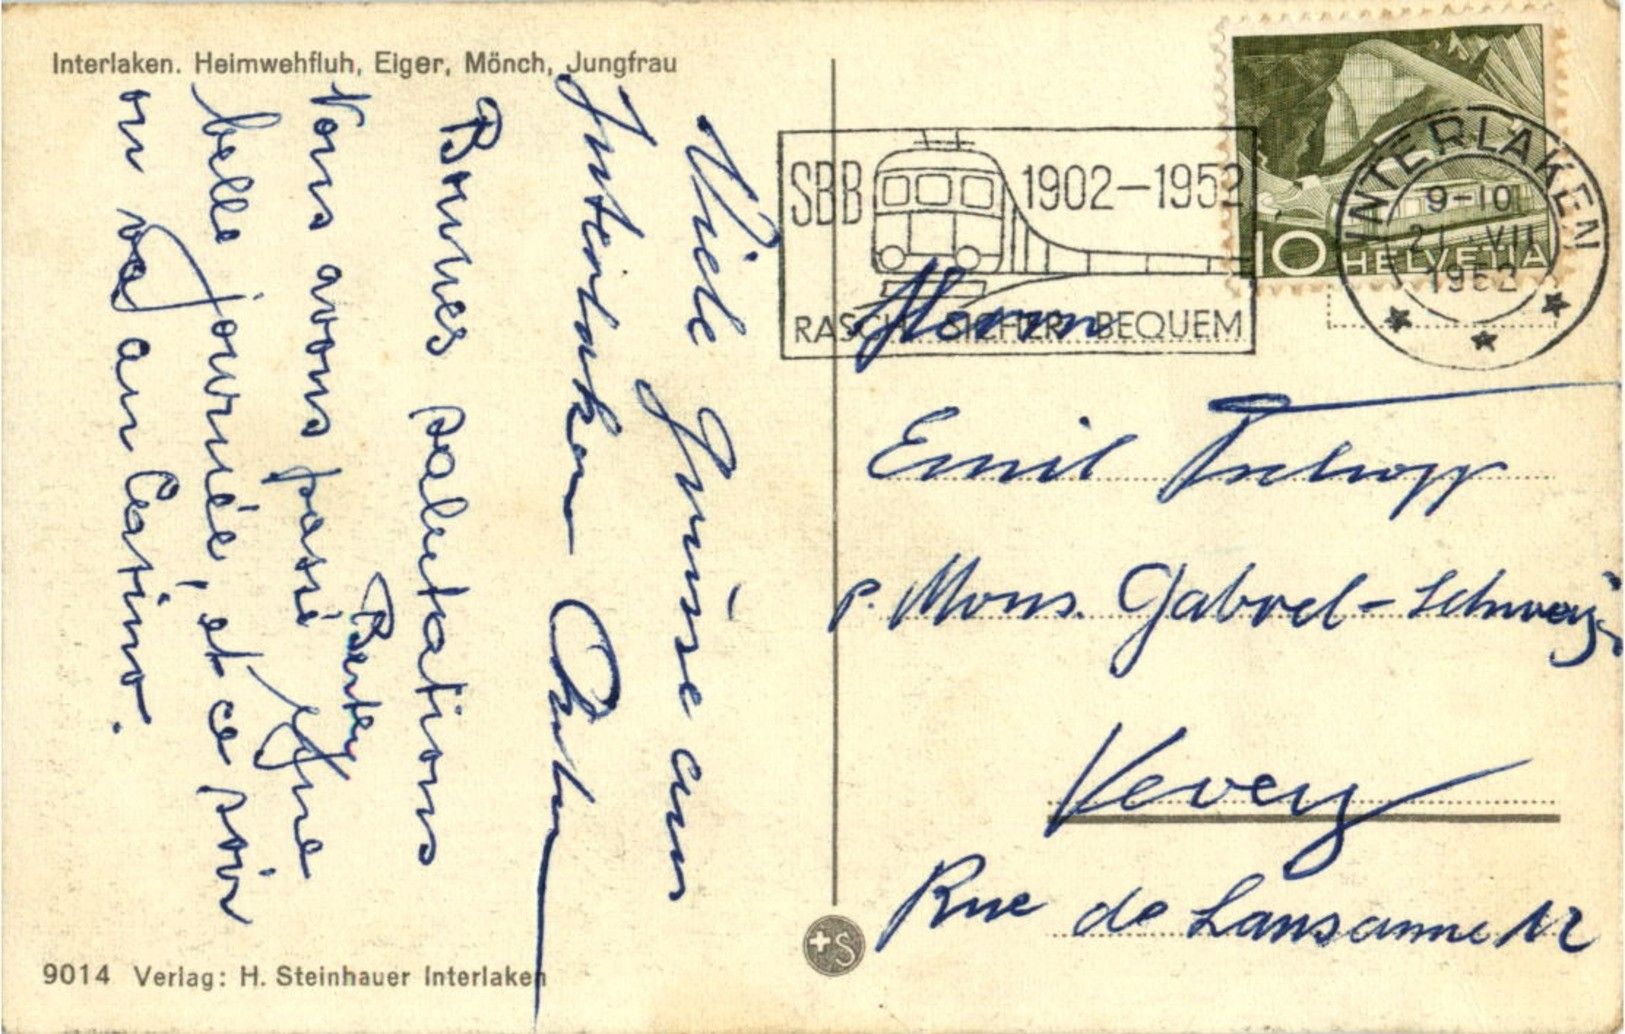 Interlaken. Heimwehfluh, Eiger, Mönch, Jungfrau
Viele Grüsse aus
Interlaken
Bonnes salutations
Berty
Nous avons passé une
belle journée, et ce soir
on va au Casino.
9014 Verlag: H. Steinhauer Interlaken
+S
SBB 1902–1952
RASCH SICHER BEQUEM
10 HELVETIA
INTERLAKEN
9-10
21 VII
1952
Herrn
Emil Tschopp
p. Mons. Gabrel-
Vevey
Rue de Lausanne 12